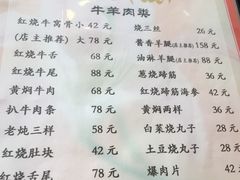 牛羊肉类
红烧牛窝骨小 42 元
(店主推荐) 大 78 元
红烧牛舌 68 元
红烧牛尾 88 元
黄焖牛肉 68 元
扒牛肉条 78 元
老炖三样 58 元
红烧肚块 42 元
红烧舌尾 78 元
烧三丝 26 元
酱香羊腿(店主推荐) 158 元
油淋羊腿(店主推荐) 88 元
葱烧蹄筋 36 元
红烧蹄筋海参 42 元
黄焖两样 36 元
白菜烧丸子 28 元
土豆烧丸子 28 元
爆肉片 42 元